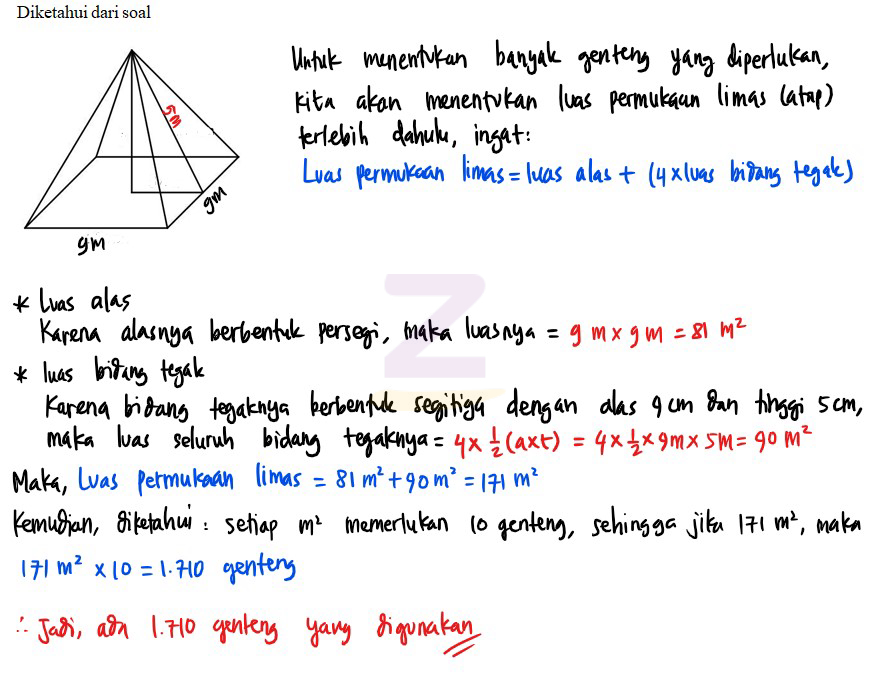 Diketahui dari soal
5m
9m
9m
Untuk menentukan banyak genteng yang diperlukan,
kita akan menentukan luas permukaan limas (atap)
terlebih dahulu, ingat:
Luas permukaan limas = luas alas + (4 x luas bidang tegak)
Z
* Luas alas
Karena alasnya berbentuk persegi, maka luasnya = 9 m x 9 m = 81 m²
* luas bidang tegak
Karena bidang tegaknya berbentuk segitiga dengan alas 9 cm dan tinggi 5 cm,
maka luas seluruh bidang tegaknya = 4 x ½ (a x t) = 4 x ½ x 9m x 5m = 90 m²
Maka, Luas permukaan limas = 81 m² + 90 m² = 171 m²
Kemudian, diketahui : setiap m² memerlukan 10 genteng, sehingga jika 171 m², maka
171 m² x 10 = 1.710 genteng
∴ Jadi, ada 1.710 genteng yang digunakan